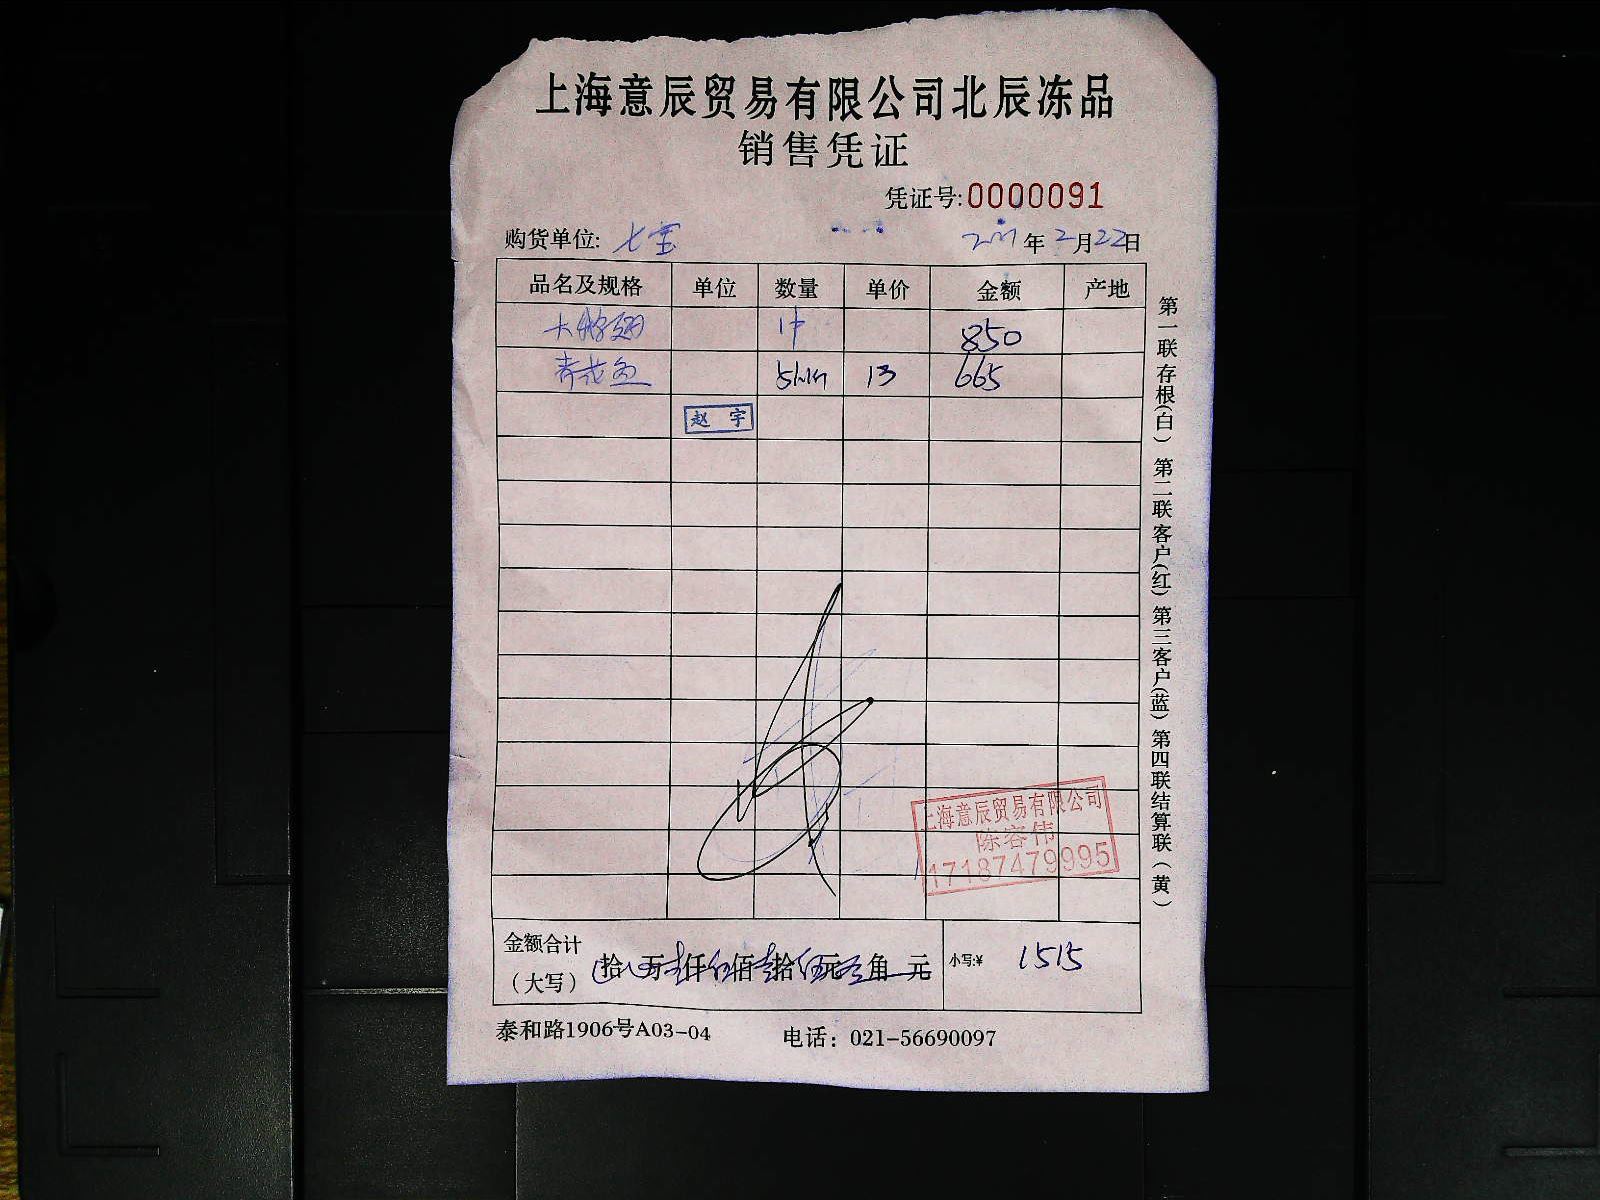 上海意辰贸易有限公司北辰冻品
销售凭证
凭证号:0000091
购货单位: 七宝 年2月22日
品名及规格 单位 数量 单价 金额 产地
1件 850
青花鱼 13 665
赵宇
上海意辰贸易有限公司
陈容伟
17187479995
金额合计(大写) 拾 万 仟 佰 拾 元 角 元 小写:¥ 1515
泰和路1906号A03-04 电话：021-56690097
第一联存根(白) 第二联客户(红) 第三客户(蓝) 第四联结算联(黄)